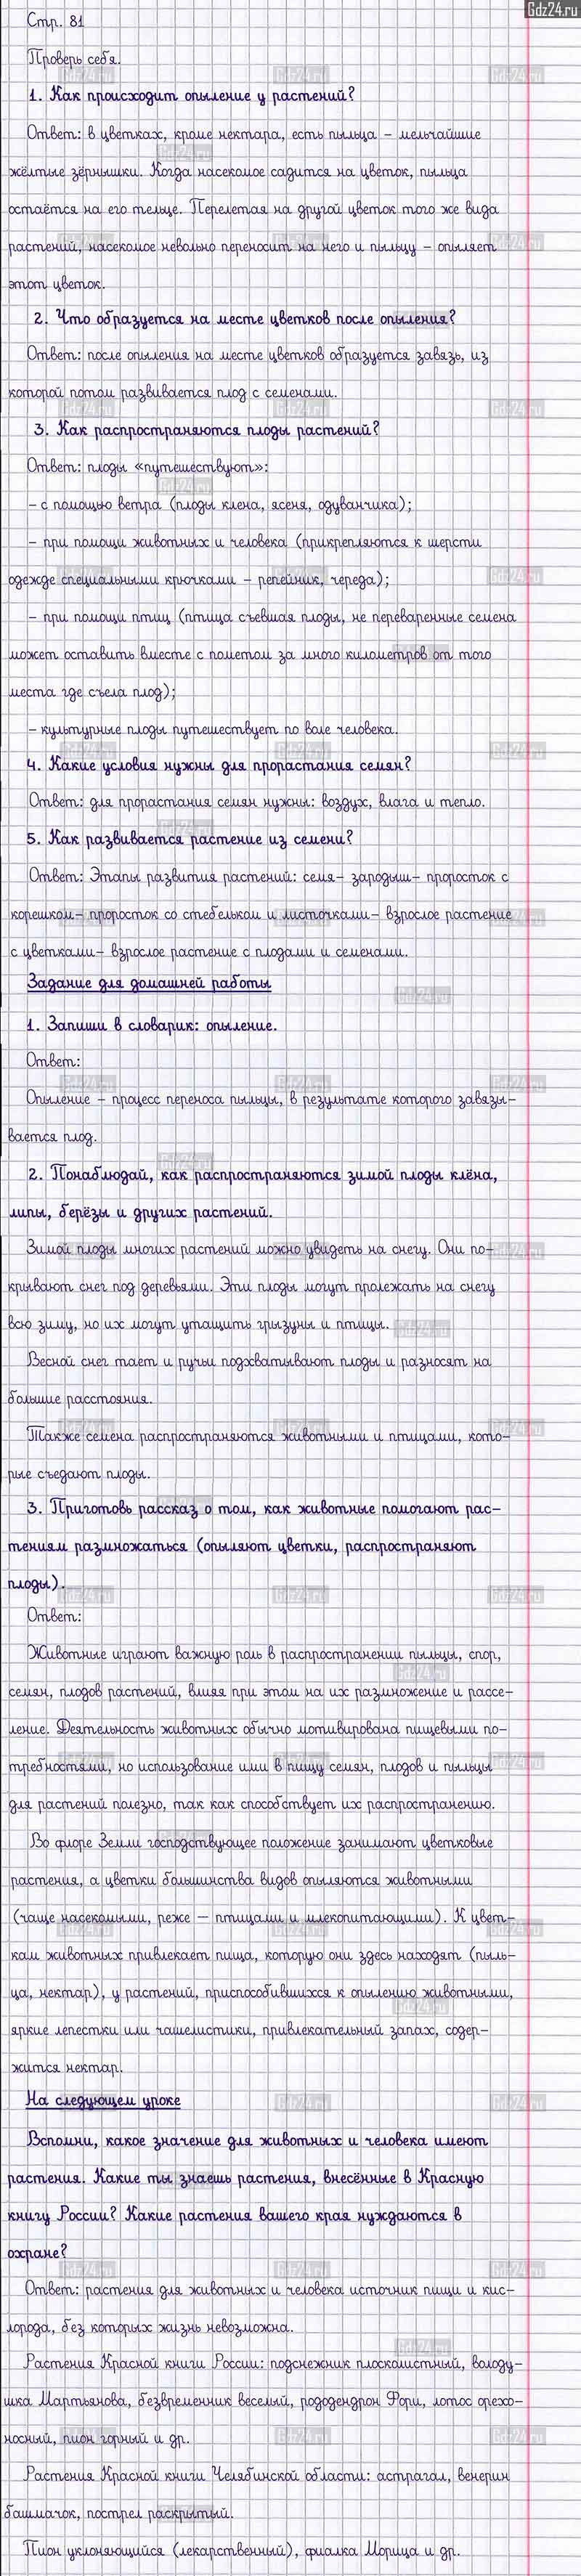 Gdz24.ru
Стр. 81
Проверь себя.
1. Как происходит опыление у растений?
Ответ: в цветках, кроме нектара, есть пыльца – мельчайшие
жёлтые зёрнышки. Когда насекомое садится на цветок, пыльца
остаётся на его тельце. Перелетая на другой цветок того же вида
растений, насекомое невольно переносит на него и пыльцу – опыляет
этот цветок.
2. Что образуется на месте цветков после опыления?
Ответ: после опыления на месте цветков образуется завязь, из
которой потом развивается плод с семенами.
3. Как распространяются плоды растений?
Ответ: плоды «путешествуют»:
– с помощью ветра (плоды клена, ясеня, одуванчика);
– при помощи животных и человека (прикрепляются к шерсти
одежде специальными крючками – репейник, череда);
– при помощи птиц (птица съевшая плоды, не переваренные семена
может оставить вместе с пометом за много километров от того
места где съела плод);
– культурные плоды путешествует по воле человека.
4. Какие условия нужны для прорастания семян?
Ответ: для прорастания семян нужны: воздух, влага и тепло.
5. Как развивается растение из семени?
Ответ: Этапы развития растений: семя– зародыш– проросток с
корешком– проросток со стебельком и листочками– взрослое растение
с цветками– взрослое растение с плодами и семенами.
Задание для домашней работы
1. Запиши в словарик: опыление.
Ответ:
Опыление – процесс переноса пыльцы, в результате которого завязы–
вается плод.
2. Понаблюдай, как распространяются зимой плоды клёна,
липы, берёзы и других растений.
Зимой плоды многих растений можно увидеть на снегу. Они по–
крывают снег под деревьями. Эти плоды могут пролежать на снегу
всю зиму, но их могут утащить грызуны и птицы.
Весной снег тает и ручьи подхватывают плоды и разносят на
большие расстояния.
Также семена распространяются животными и птицами, кото–
рые съедают плоды.
3. Приготовь рассказ о том, как животные помогают рас–
тениям размножаться (опыляют цветки, распространяют
плоды).
Ответ:
Животные играют важную роль в распространении пыльцы, спор,
семян, плодов растений, влияя при этом на их размножение и рассе–
ление. Деятельность животных обычно мотивирована пищевыми по–
требностями, но использование ими в пищу семян, плодов и пыльцы
для растений полезно, так как способствует их распространению.
Во флоре Земли господствующее положение занимают цветковые
растения, а цветки большинства видов опыляются животными
(чаще насекомыми, реже — птицами и млекопитающими). К цвет–
кам животных привлекает пища, которую они здесь находят (пыль–
ца, нектар), у растений, приспособившихся к опылению животными,
яркие лепестки или чашелистики, привлекательный запах, содер–
жится нектар.
На следующем уроке
Вспомни, какое значение для животных и человека имеют
растения. Какие ты знаешь растения, внесённые в Красную
книгу России? Какие растения вашего края нуждаются в
охране?
Ответ: растения для животных и человека источник пищи и кис–
лорода, без которых жизнь невозможна.
Растения Красной книги России: подснежник плосколистный, володу–
шка Мартьянова, безвременник веселый, рододендрон Фори, лотос орехо–
носный, пион горный и др.
Растения Красной книги Челябинской области: астрагал, венерин
башмачок, прострел раскрытый.
Пион уклоняющийся (лекарственный), фиалка Морица и др.